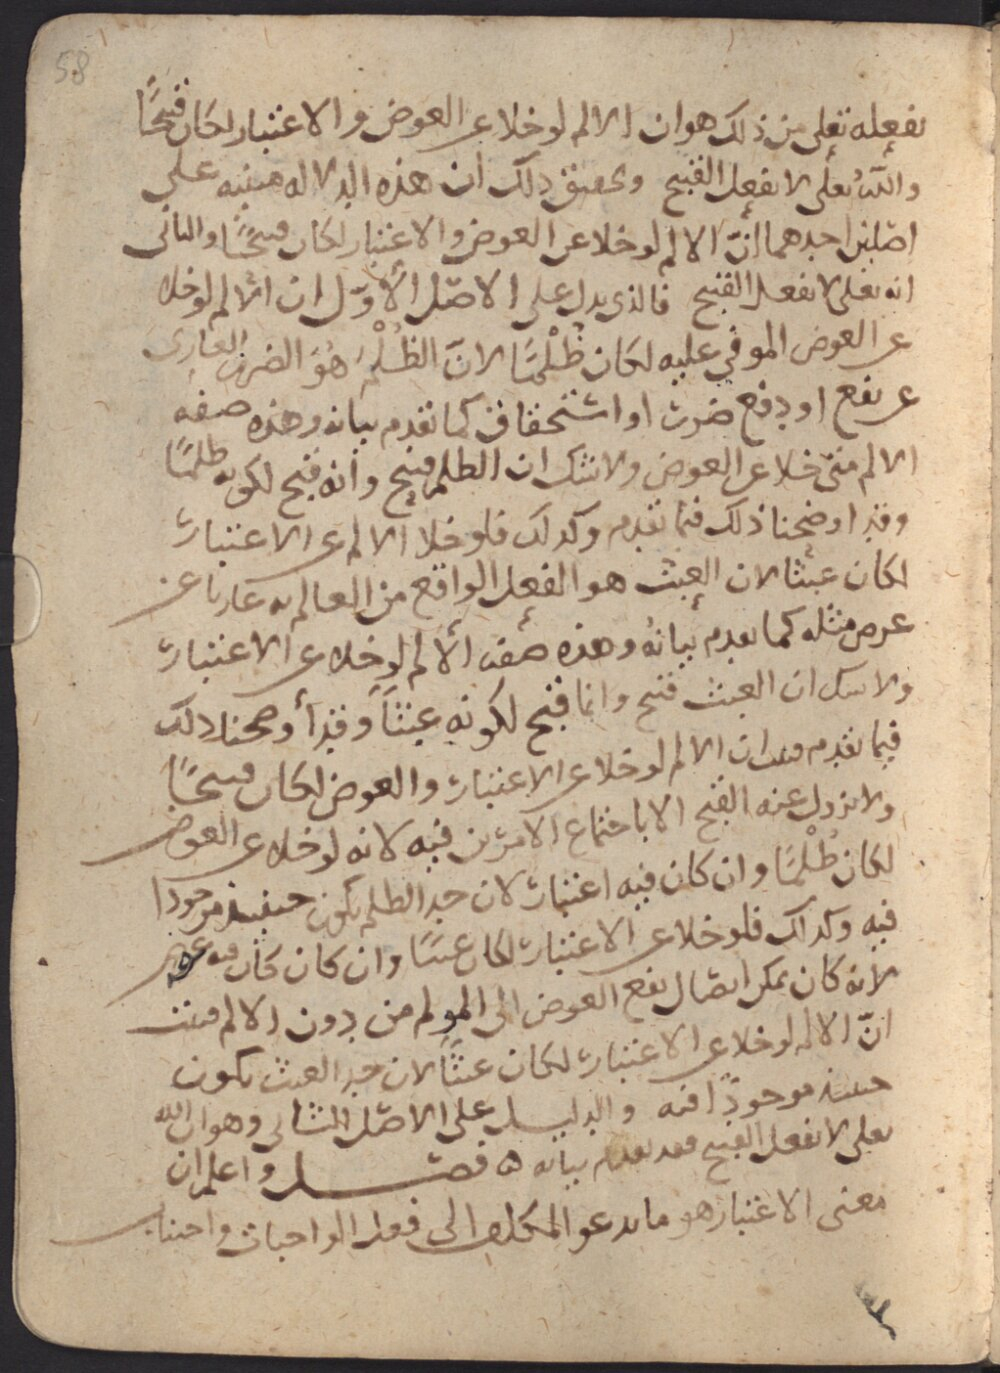 58
يفعله تعلى من ذلك هو ان الالم لو خلا عن العوض والاعتبار لكان قبيحًا
والله تعلى لا يفعل القبيح وتحقيق ذلك ان هذه الدلاله مبنيه على
اصلين احدهما انّ الالم لو خلا عن العوض والاعتبار لكان قبيحًا والثانى
انه تعلى لا يفعل القبيح فالذى يدل على الاصل الأوّل ان الالم لو خلا
عن العوض الموفي عليه لكان ظُلْمًا لانّ الظُلْم هُوَ الضرر العارى
عن نفع او دفع ضرر او استحقاق كما تقدم بيانه وهذه صفه
الالم متى خلا عن العوض ولا شك ان الظلم قبيح وانه قبح لكونه ظلمًا
وقد اوضحنا ذلك فيما تقدم وكذلك فلو خلا الالم عن الاعتبار
لكان عبثا لان العبث هو الفعل الواقع من العالم به عاريا عن
غرض مثله كما تقدم بيانه وهذه صفه الألم لو خلا عن الاعتبار
ولا شك ان العبث قبيح وانما قبح لكونه عبثاً وقد أوضحنا ذلك
فيما تقدم فثبت ان الالم لو خلا عن الاعتبار والعوض لكان قبيحًا
ولا يزول عنه القبح الا باجتماع الامرين فيه لانه لو خلا عن العوض
لكان ظُلْمًا وان كان فيه اعتبار لان حد الظلم يكون حينيذ موجودا
فيه وكذلك فلو خلا عن الاعتبار لكان عبثًا وان كان كان فيه عوض
لانه كان يمكن ايصال نفع العوض الى المولم من دون الالم فثبت
انّ الالم لو خلا عن الاعتبار لكان عبثًا لان حد العبث يكون
حينيذ موجودًا فيه والدليــل على الاصل الثانى وهو ان الله
تعلى لا يفعل القبيح فقد تقدم بيانه ه فصــــل واعلم ان
معنى الاعتبار هو ما يدعو المكلف الى فعل الواجبات واجتناب